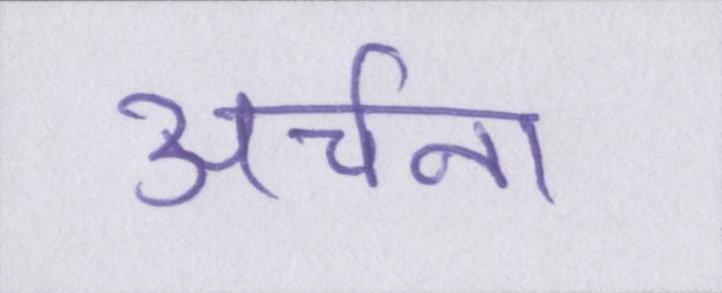 अर्चना